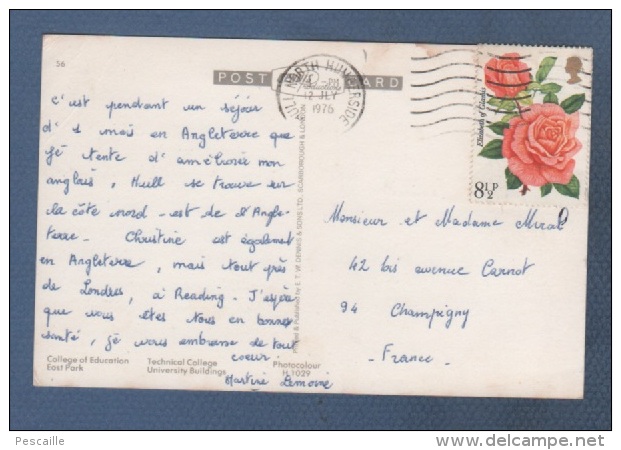 36
POST CARD
HULL NORTH HUMBERSIDE
12 JLY
1976
Elizabeth of Glamis
8½P
c'est pendant un séjour
d'1 mois en Angleterre que
je tente d'améliorer mon
anglais, Hull se trouve sur
la côte nord-est de l'Angle-
terre - Christine est également
en Angleterre, mais tout près
de Londres, à Reading - J'espère
que vous êtes tous en bonne
santé, je vous embrasse de tout
coeur.
Martine Lemoine
Monsieur et Madame Miral
42 bis avenue Carnot
94 Champigny
- France -
Printed & Published by E. T. W. DENNIS & SONS LTD., SCARBOROUGH & LONDON
College of Education Technical College Photocolour
East Park University Buildings H.1029
Pescaille
http://www.delcampe.net